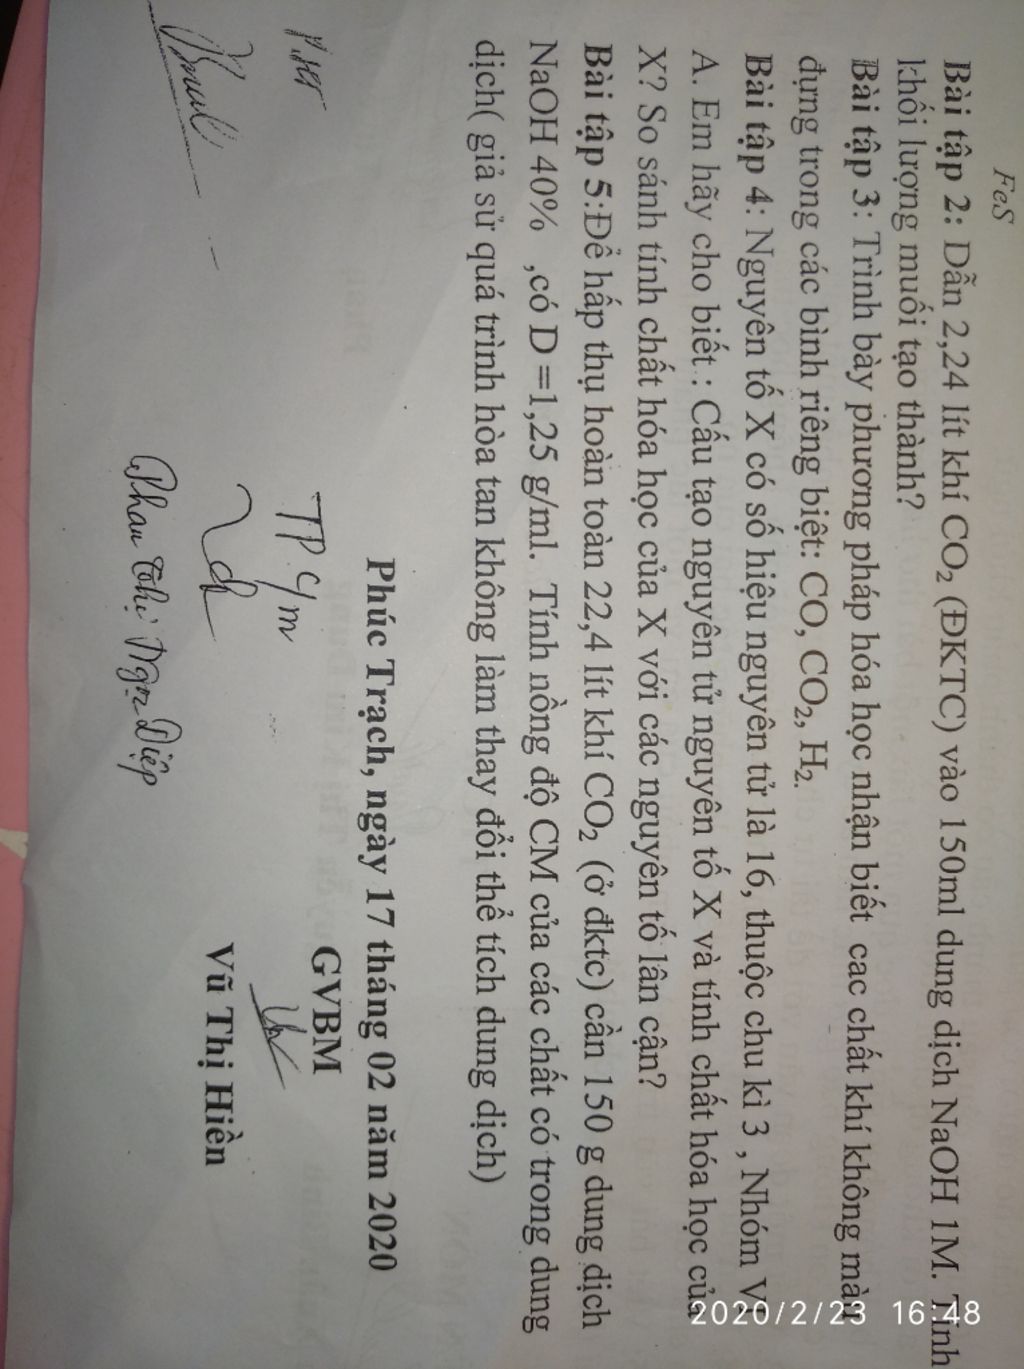 FeS
Bài tập 2: Dẫn 2,24 lít khí CO₂ (ĐKTC) vào 150ml dung dịch NaOH 1M. Tính
khối lượng muối tạo thành?
Bài tập 3: Trình bày phương pháp hóa học nhận biết cac chất khí không màu
đựng trong các bình riêng biệt: CO, CO₂, H₂.
Bài tập 4: Nguyên tố X có số hiệu nguyên tử là 16, thuộc chu kì 3 , Nhóm VI
A. Em hãy cho biết : Cấu tạo nguyên tử nguyên tố X và tính chất hóa học của
X? So sánh tính chất hóa học của X với các nguyên tố lân cận?
Bài tập 5:Để hấp thụ hoàn toàn 22,4 lít khí CO₂ (ở đktc) cần 150 g dung dịch
NaOH 40% ,có D =1,25 g/ml. Tính nồng độ CM của các chất có trong dung
dịch( giả sử quá trình hòa tan không làm thay đổi thể tích dung dịch)
Phúc Trạch, ngày 17 tháng 02 năm 2020
TPCM
GVBM
Phan Thị Ngọc Diệp
Vũ Thị Hiền
2020/2/23 16:48